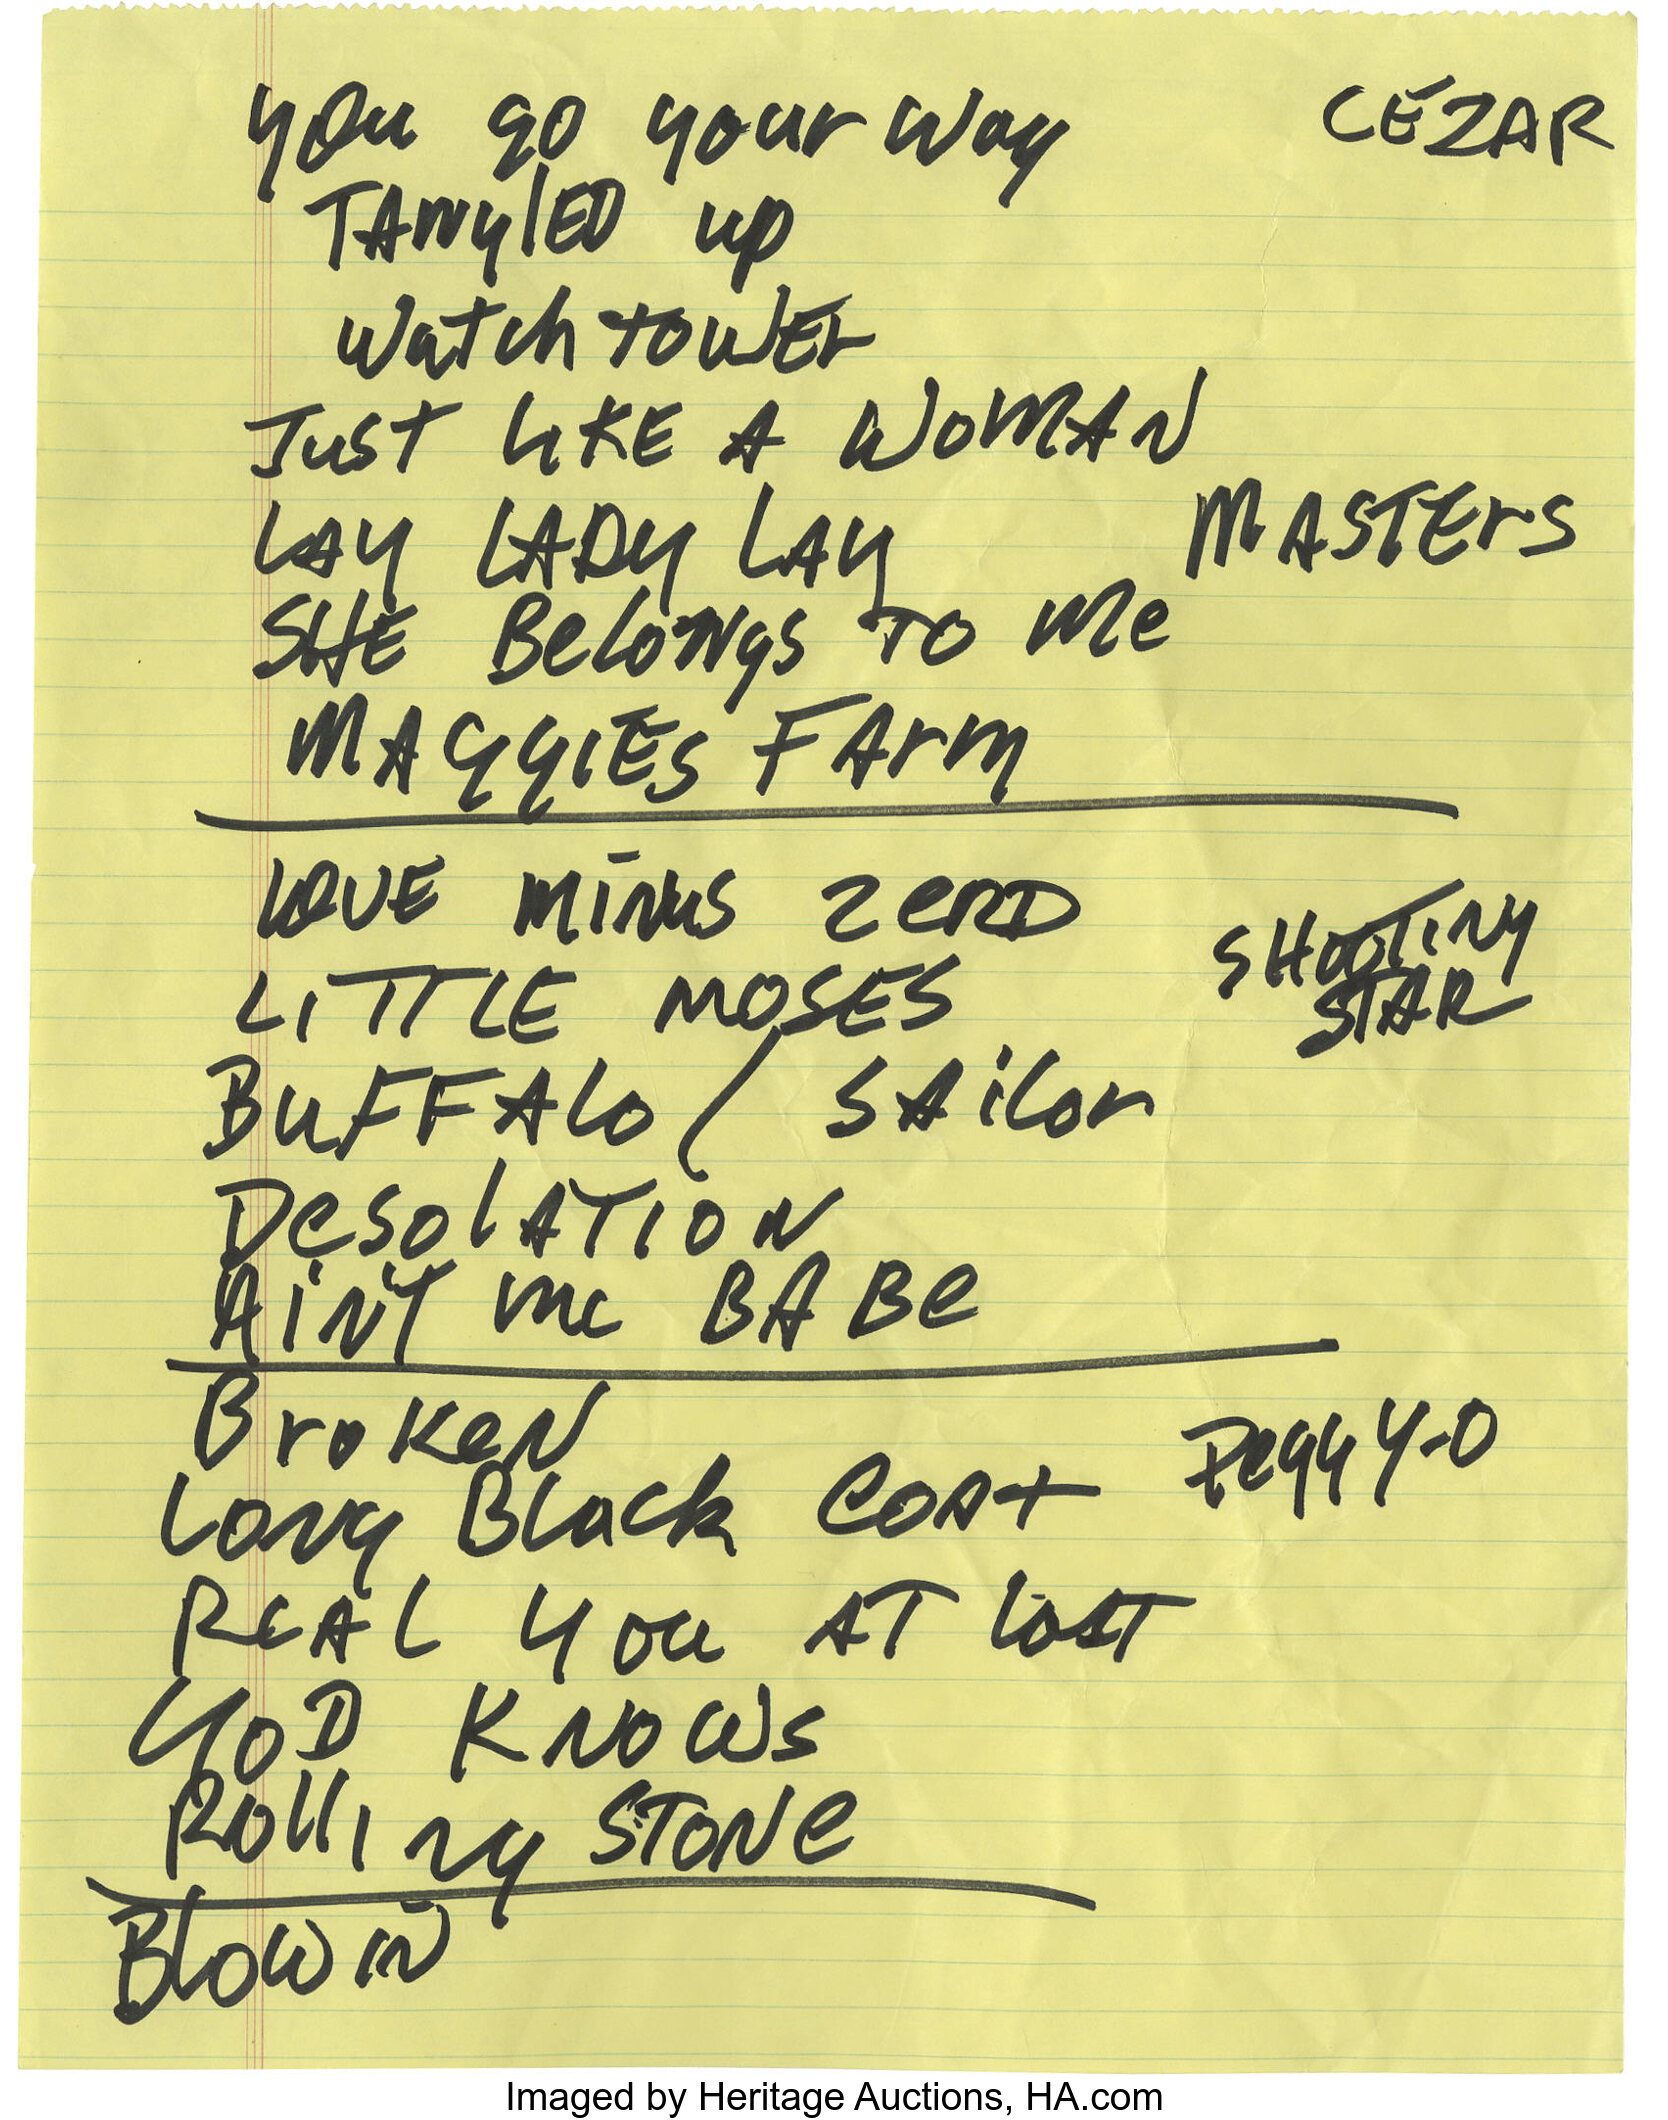 you go your way CÉZAR
TANgLED up
watchtower
JUST LIKE A WOMAN
LAY LADY LAY MASTErS
SHE BeloNgs TO Me
MAggIES FArm
LOVE MINUS ZERO
SHOOTINg
LITTLE MOSES STAR
BUFFALO / SAilor
DesolATION
AiNT me BABe
BroKeN
Peggy-O
LoNg BLack CoAt
REAL you AT LAST
GOD KNOWS
Rolling STONe
Blowin
Imaged by Heritage Auctions, HA.com